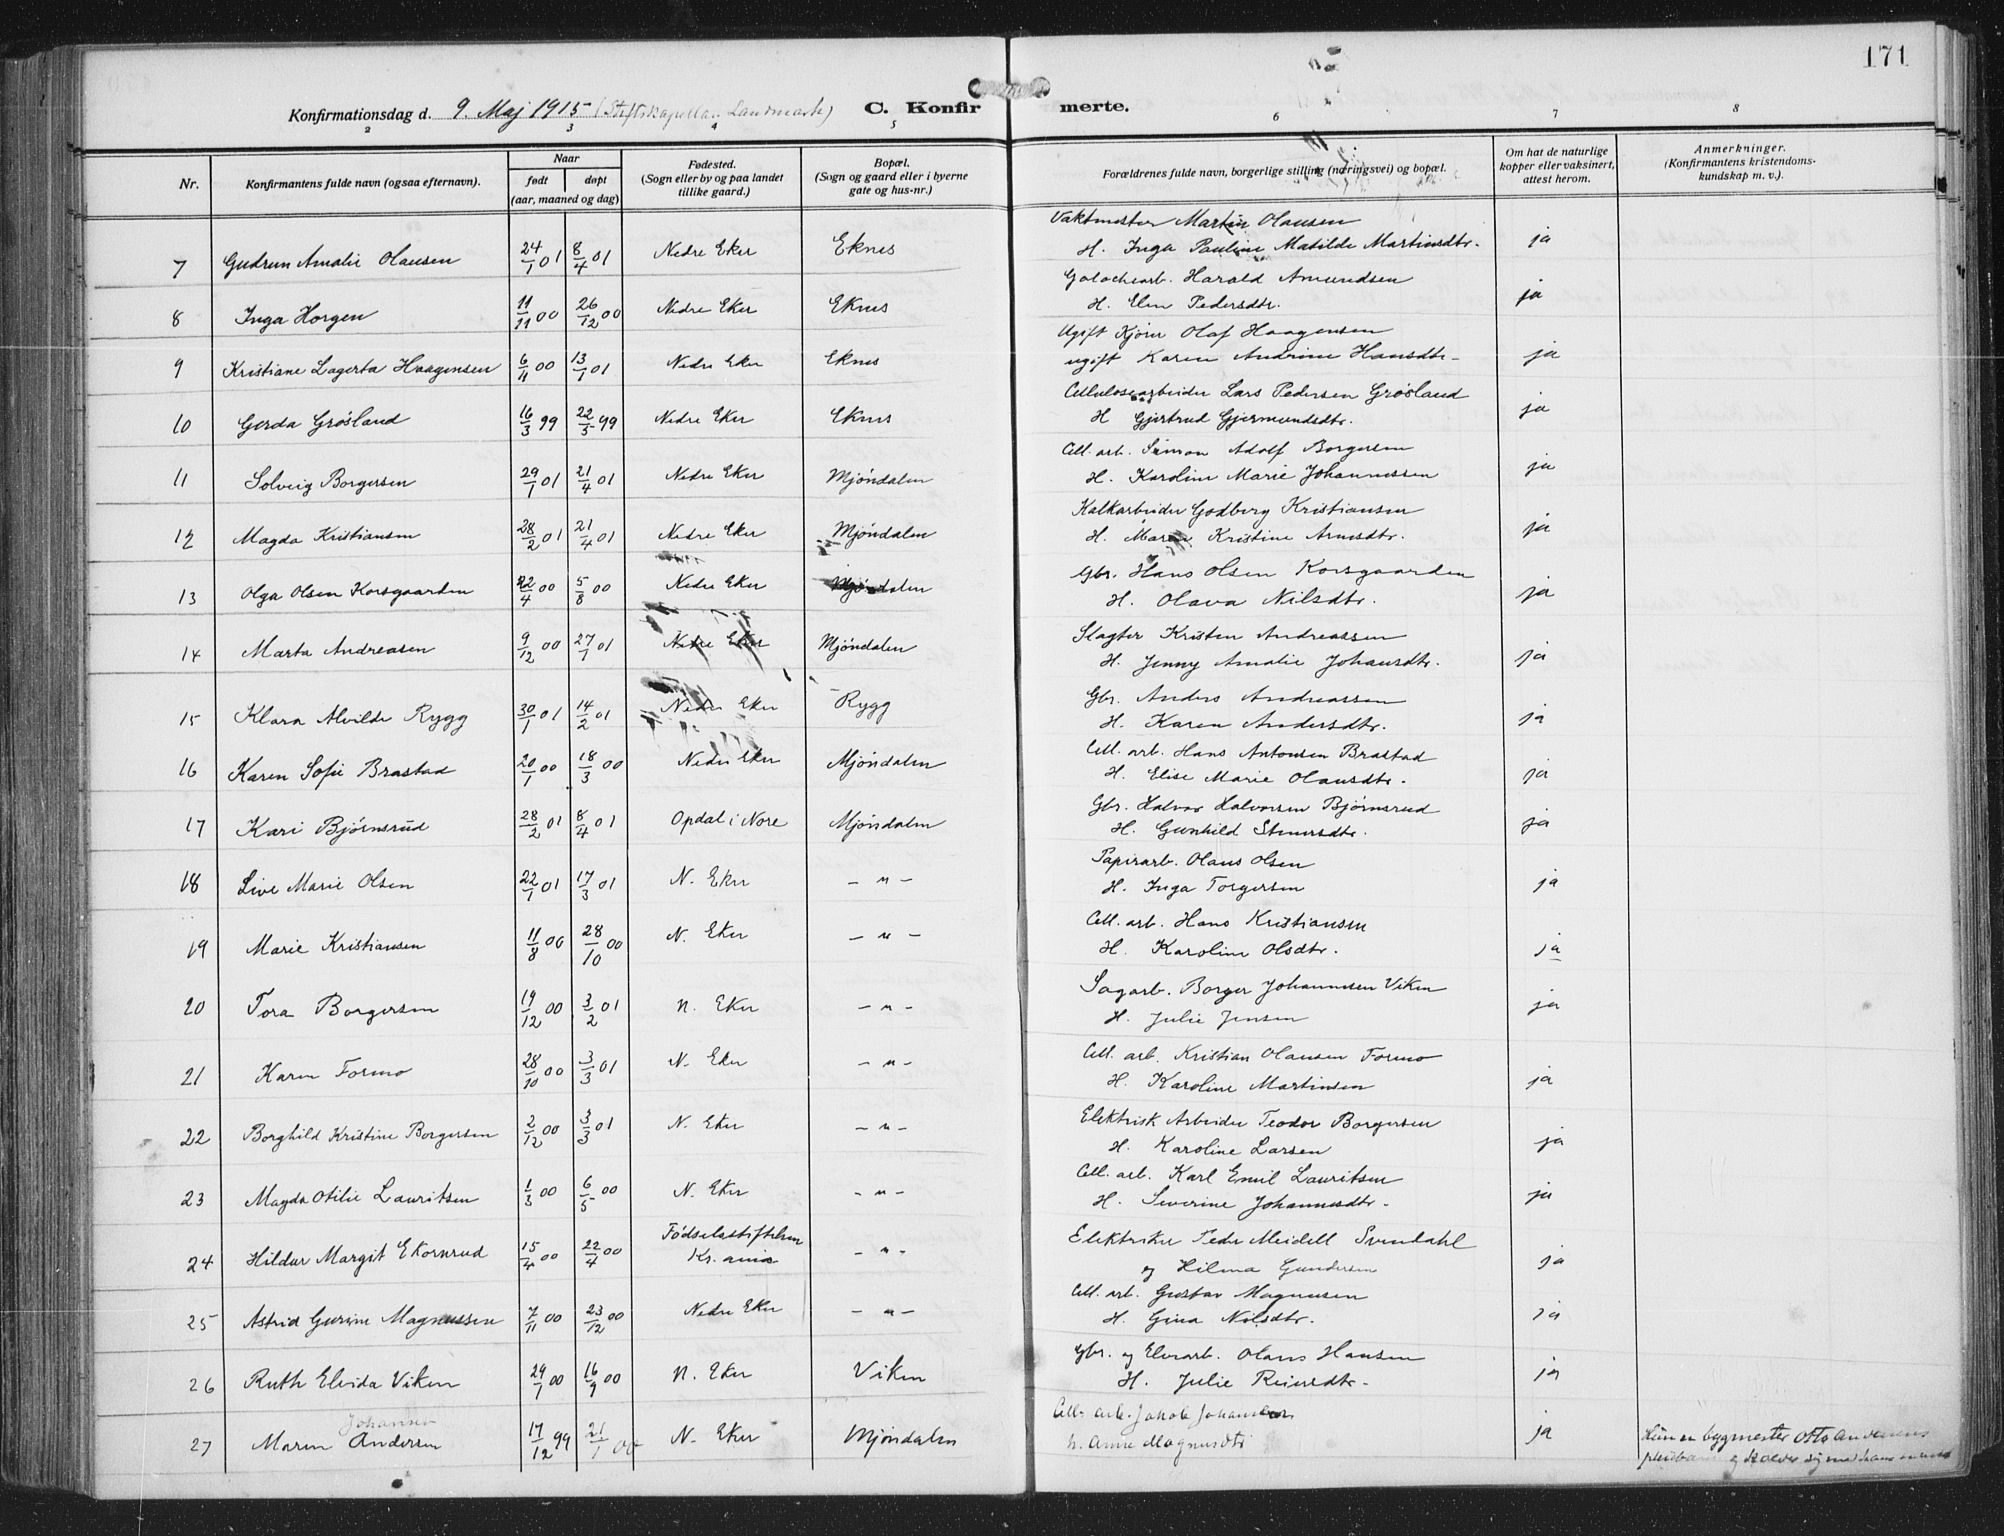 171
Konfirmationsdag d. 9. Maj 1915 (Stiftskapellan Landmark) C. Konfir merte.
2 3 4 5 6 7 8
Nr. Konfirmantens fulde navn (ogsaa efternavn). Naar født døpt (aar, maaned og dag) Fødested. (Sogn eller by og paa landet tillike gaard.) Bopæl. (Sogn og gaard eller i byerne gate og hus-nr.) Forældrenes fulde navn, borgerlige stilling (næringsvei) og bopæl. Om hat de naturlige kopper eller vaksinert, attest herom. Anmerkninger. (Konfirmantens kristendoms-kundskap m. v.)
Vaktmester Martin Olausen
7 Gudrun Amalie Olausen 24/1 01 8/4 01 Nedre Eker Eknes H. Inga Pauline Matilde Martinsdtr. ja
Galochearb. Harald Amundsen
8 Inga Horgen 11/11 00 26/12 00 Nedre Eker Eknes H. Elen Pedersdtr. ja
Ugift Kjører Olaf Haagensen
9 Kristiane Lagerta Haagensen 6/11 00 13/1 01 Nedre Eker Eknes ugift Karen Andrine Hansdtr. ja
Cellulosearbeider Lars Pedersen Grøsland
10 Gerda Grøsland 16/3 99 22/5 99 Nedre Eker Eknes H Gjertrud Gjermundsdtr. ja
Cell. arb. Simon Adolf Borgersen
11 Solveig Borgersen 29/1 01 21/4 01 Nedre Eker Mjøndalen H. Karoline Marie Johannessen ja
Kalkarbeider Godberg Kristiansen
12 Magda Kristiansen 28/2 01 21/4 01 Nedre Eker Mjøndalen H. Maren Kristine Arnesdtr. ja
Gbr. Hans Olsen Korsgaarden
13 Olga Olsen Korsgaarden 22/4 00 5/8 00 Nedre Eker Mjøndalen H. Olava Nilsdtr. ja
Slagter Kristen Andreassen
14 Marta Andreasen 9/12 00 27/1 01 Nedre Eker Mjøndalen H. Jenny Amalie Johansdtr. ja
Gbr. Anders Andreassen
15 Klara Alvilde Rygg 30/1 01 14/2 01 Nedre Eker Rygg H. Karen Andersdtr. ja
Cell. arb. Hans Antonsen Brastad
16 Karen Sofie Brastad 20/1 00 18/3 00 Nedre Eker Mjøndalen H. Elise Marie Olausdtr. ja
Gbr. Halvor Halvorsen Bjørnsrud
17 Kari Bjørnsrud 28/2 01 8/4 01 Opdal i Nore Mjøndalen H. Gunhild Stenersdtr. ja
Papirarb. Olaus Olsen
18 Live Marie Olsen 22/1 01 17/3 01 N. Eker – " – H. Inga Torgersen ja
Cell. arb. Hans Kristiansen
19 Marie Kristiansen 11/8 00 28/10 00 N. Eker – " – H. Karoline Olsdtr. ja
Sagarb. Borger Johannesen Viken
20 Tora Borgersen 19/12 00 3/2 01 N. Eker – " – H. Julie Jensen ja
Cell. arb. Kristian Olausen Formo
21 Karen Formo 28/10 00 3/3 01 N. Eker – " – H. Karoline Martinsen ja
Elektrisk Arbeider Teodor Borgersen
22 Borghild Kristine Borgersen 2/12 00 3/3 01 N. Eker – " – H. Karoline Larsen ja
Cell. arb. Karl Emil Lauritsen
23 Magda Otilie Lauritsen 1/3 00 6/5 00 N. Eker – " – H. Severine Johannesdtr. ja
Fødselsstiftelsen Elektriker Peder Meidell Svendahl
24 Hildur Margit Ekornrud 15/4 00 22/4 00 Kr.ania – " – og Hilma Gundersen ja
Cell. arb. Gustav Magnusen
25 Astrid Gurine Magnussen 7/11 00 23/12 00 Nedre Eker – " – H. Gina Nilsdtr. ja
Gbr. og Elvearb. Olaus Hansen
26 Ruth Elvida Viken 29/1 00 16/9 00 N. Eker Viken H. Julie Reiersdtr. ja
Johansen Cell. arb. Jakob Johansen
27 Maren Andersen 17/12 99 21/1 00 N. Eker Mjøndalen h. Anne Magnusdtr ja Hun er bygmester Otto Andersens
pleiebarn og kalder sig med hans navn